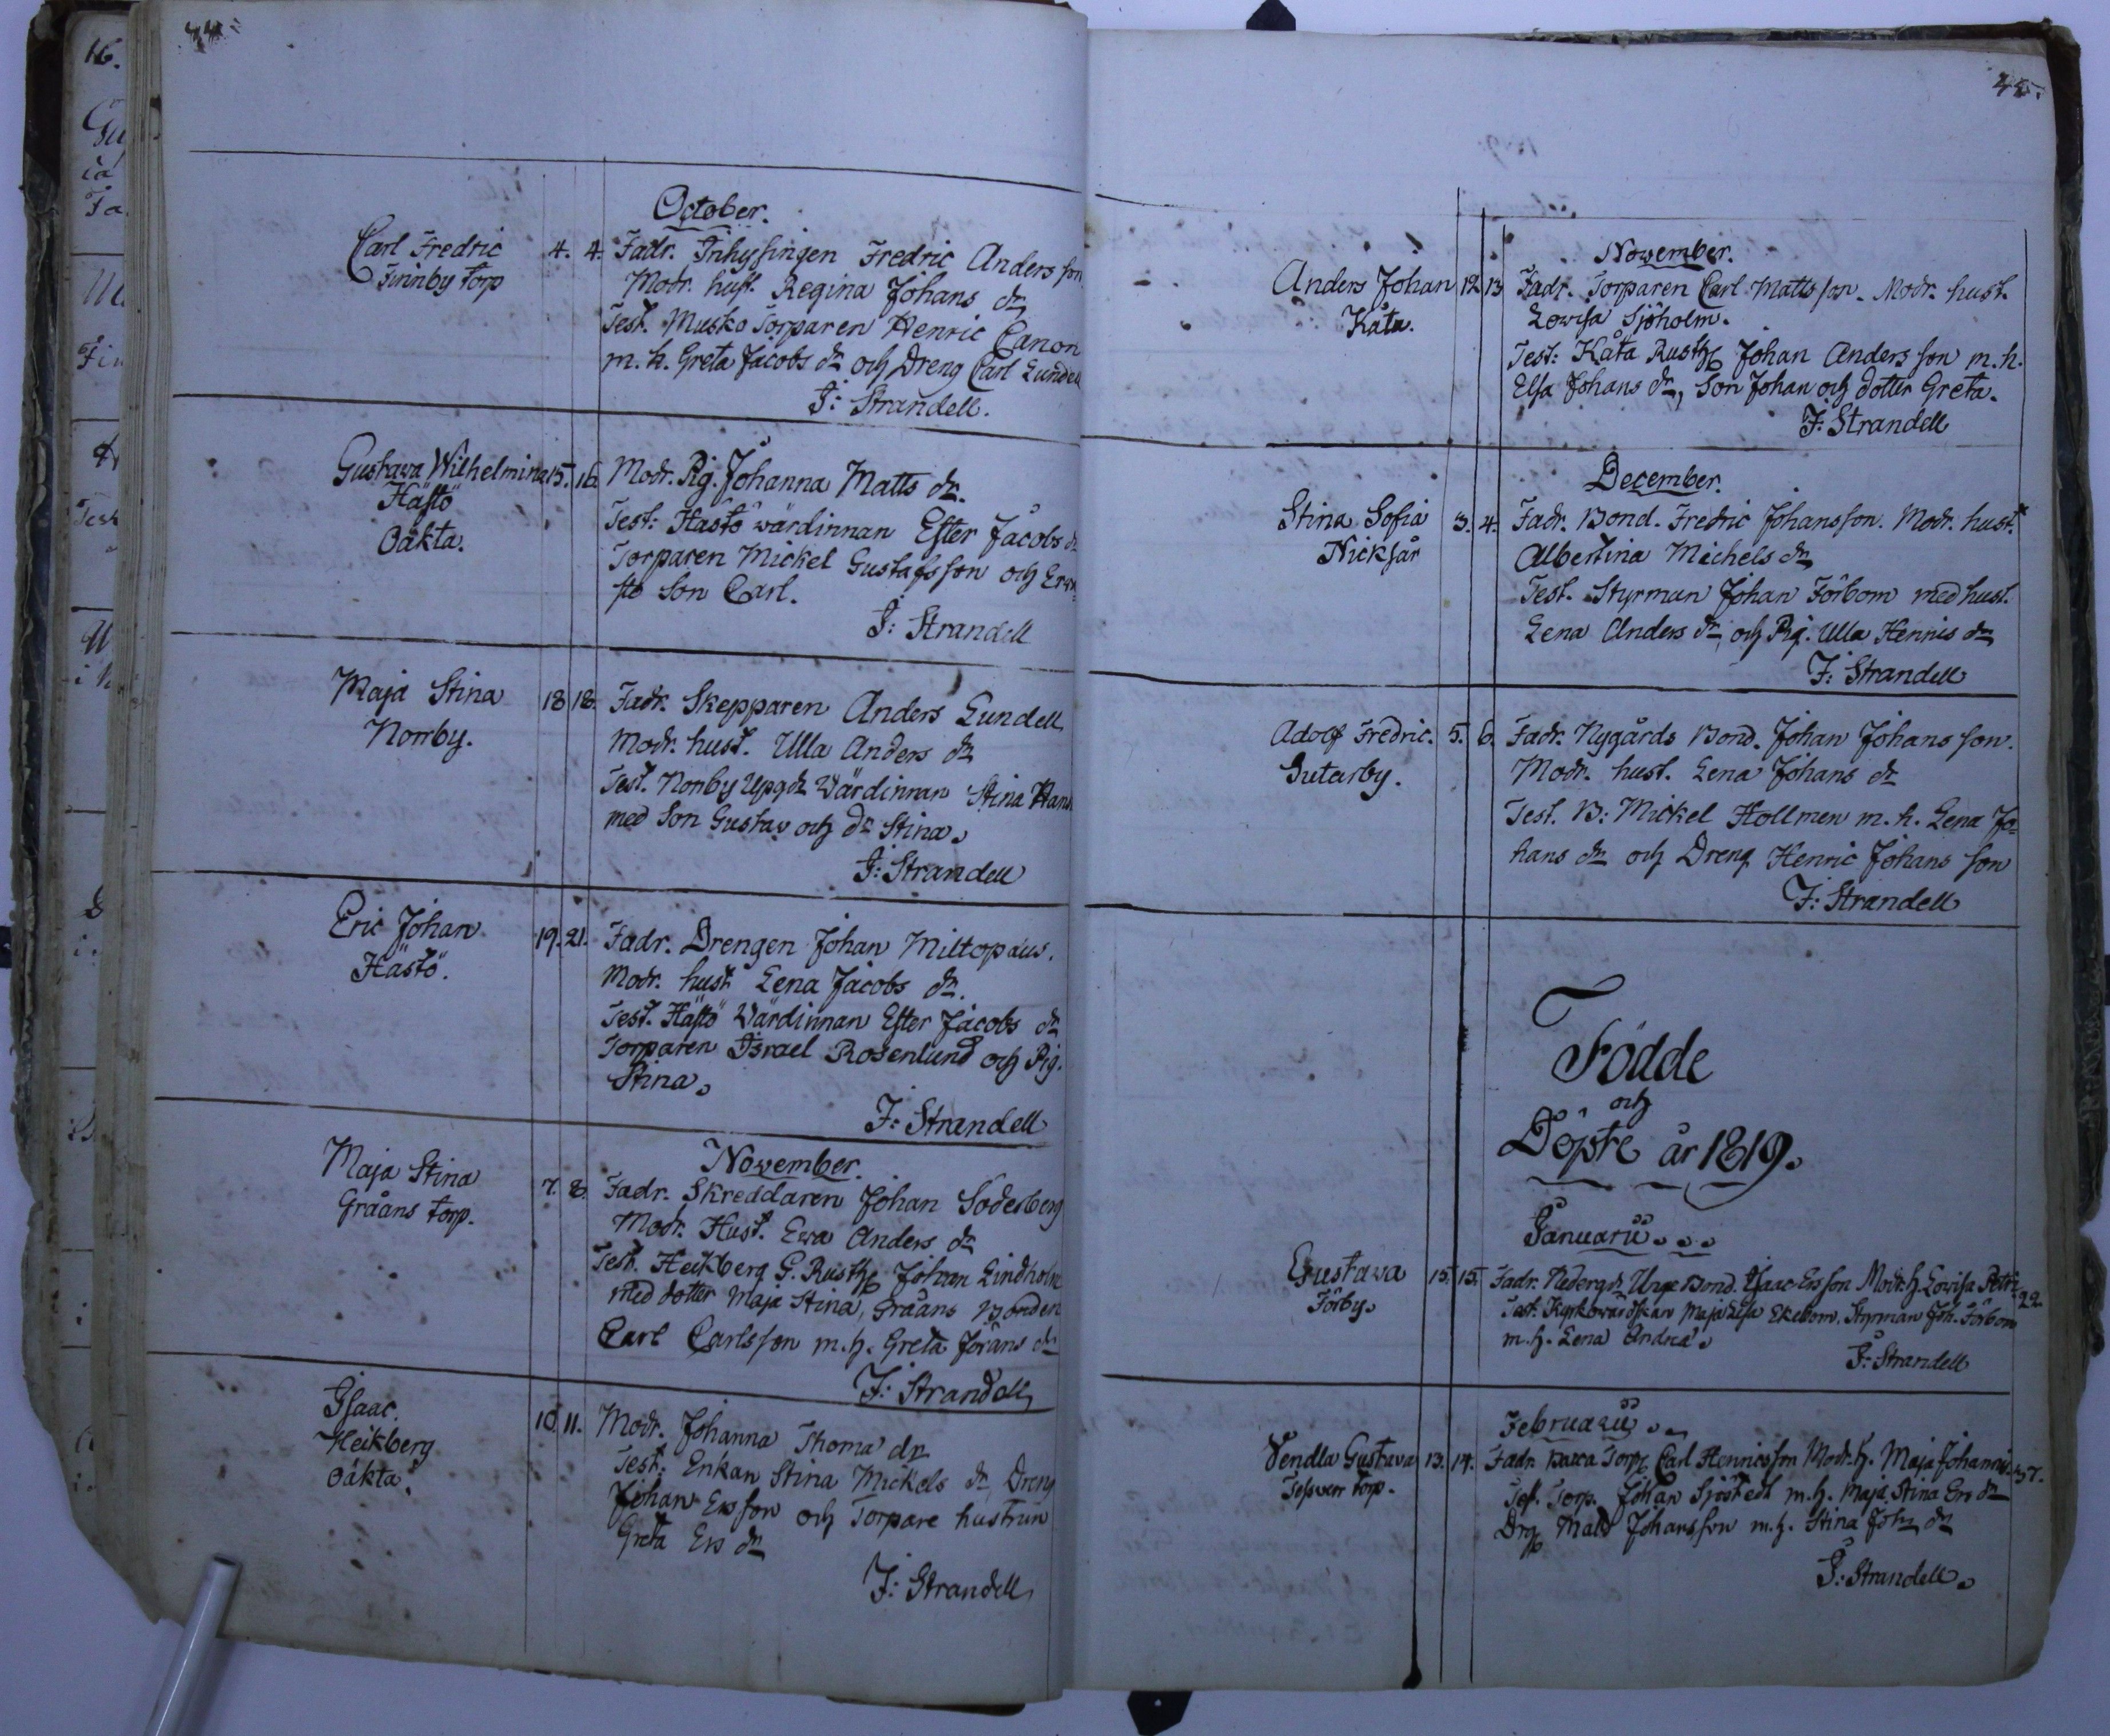 44.
October.
Carl Fredric 4. 4. Fadr. Inhysingen Fredric Andersson
Finnby torp Modr. hust. Regina Johans dr
Test. Musko Torparen Henric Canon
m. h. Greta Jacobs dr och Dreng Carl Lundell
J: Strandell.
Gustava Wilhelmina 15. 16. Modr. Pig. Johanna Matts dr.
Hästö Test: Hästö wärdinnan Ester Jacobs dr
Oäkta. Torparen Mickel Gustafsson och
Son Carl.
J: Strandell
Maja Stina 18 18. Fadr. Skepparen Anders Lundell
Norrby. Modr. hust. Ulla Anders dr
Test. Norrby Upgds Wärdinnan Stina Hans
med Son Gustav och dr Stina.
J: Strandell
Eric Johan 19. 21. Fadr. Drengen Johan Miltopæus.
Hästö. Modr. hust Lena Jacobs dr.
Test. Hästö Wärdinnan Ester Jacobs dr
Torparen Israel Rosenlund och Pig.
Stina.
J: Strandell
November.
Maja Stina 7. 8. Fadr. Skreddaren Johan Söderberg
Gråäns torp. Modr. Hust. Ewa Anders dr
Test. Heikberg G. Rusth Johan Lindholm
med dotter Maja Stina, Gråäns Bonden
Carl Carlsson m. h. Greta Jörans dr
J: Strandell
Isaac. 10. 11. Modr. Johanna Thoma dr
Heikberg Test: Enkan Stina Mickels dr, Dreng
Oäkta. Johan Ersson och Torpare hustrun
Greta Ers dr
J: Strandell
45.
November.
Anders Johan 12 13 Fadr. Torparen Carl Mattsson. Modr. hust.
Kåta. Lowisa Sjöholm.
Test: Kåta Rusth Johan Andersson m. h.
Elsa Johans dr, Son Johan och dotter Greta.
J: Strandell
December.
Stina Sofia 3. 4. Fadr. Bond. Fredric Johansson. Modr. hust.
Nicksår Albertina Michels dr
Test. Styrman Johan Förbom med hust.
Lena Anders dr, och Pig. Ulla Henrics dr
J: Strandell
Adolf Fredric. 5. 6. Fadr. Nygårds Bond. Johan Johansson.
Sutarby. Modr. hust. Lena Johans dr
Test. B: Mickel Hollmen m. h. Lena Jo=
hans dr och Dreng Henric Johansson
J: Strandell
Födde
och
Döpte år 1819.
Januarii...
Gustava 15. 15. Fadr. Nedergds Unge Bond. Isaac Ersson Modr. h. Lowisa Petri 22.
Förby. Test. Kyrkowärdskan Maja Lisa Ekebom, Styrman Joh. Förbom
m. h. Lena Andræ.
J: Strandell
Februarii..
Vendla Gustava 13. 14. Fadr. Torp. Carl Henricsson Modr. h. Maja Johannis. 37.
torp. Test. Torp. Johan Sjöstedt m. h. Maja Stina Ers dr
Drg Mats Johansson m. h. Stina Joh dr
J: Strandell.